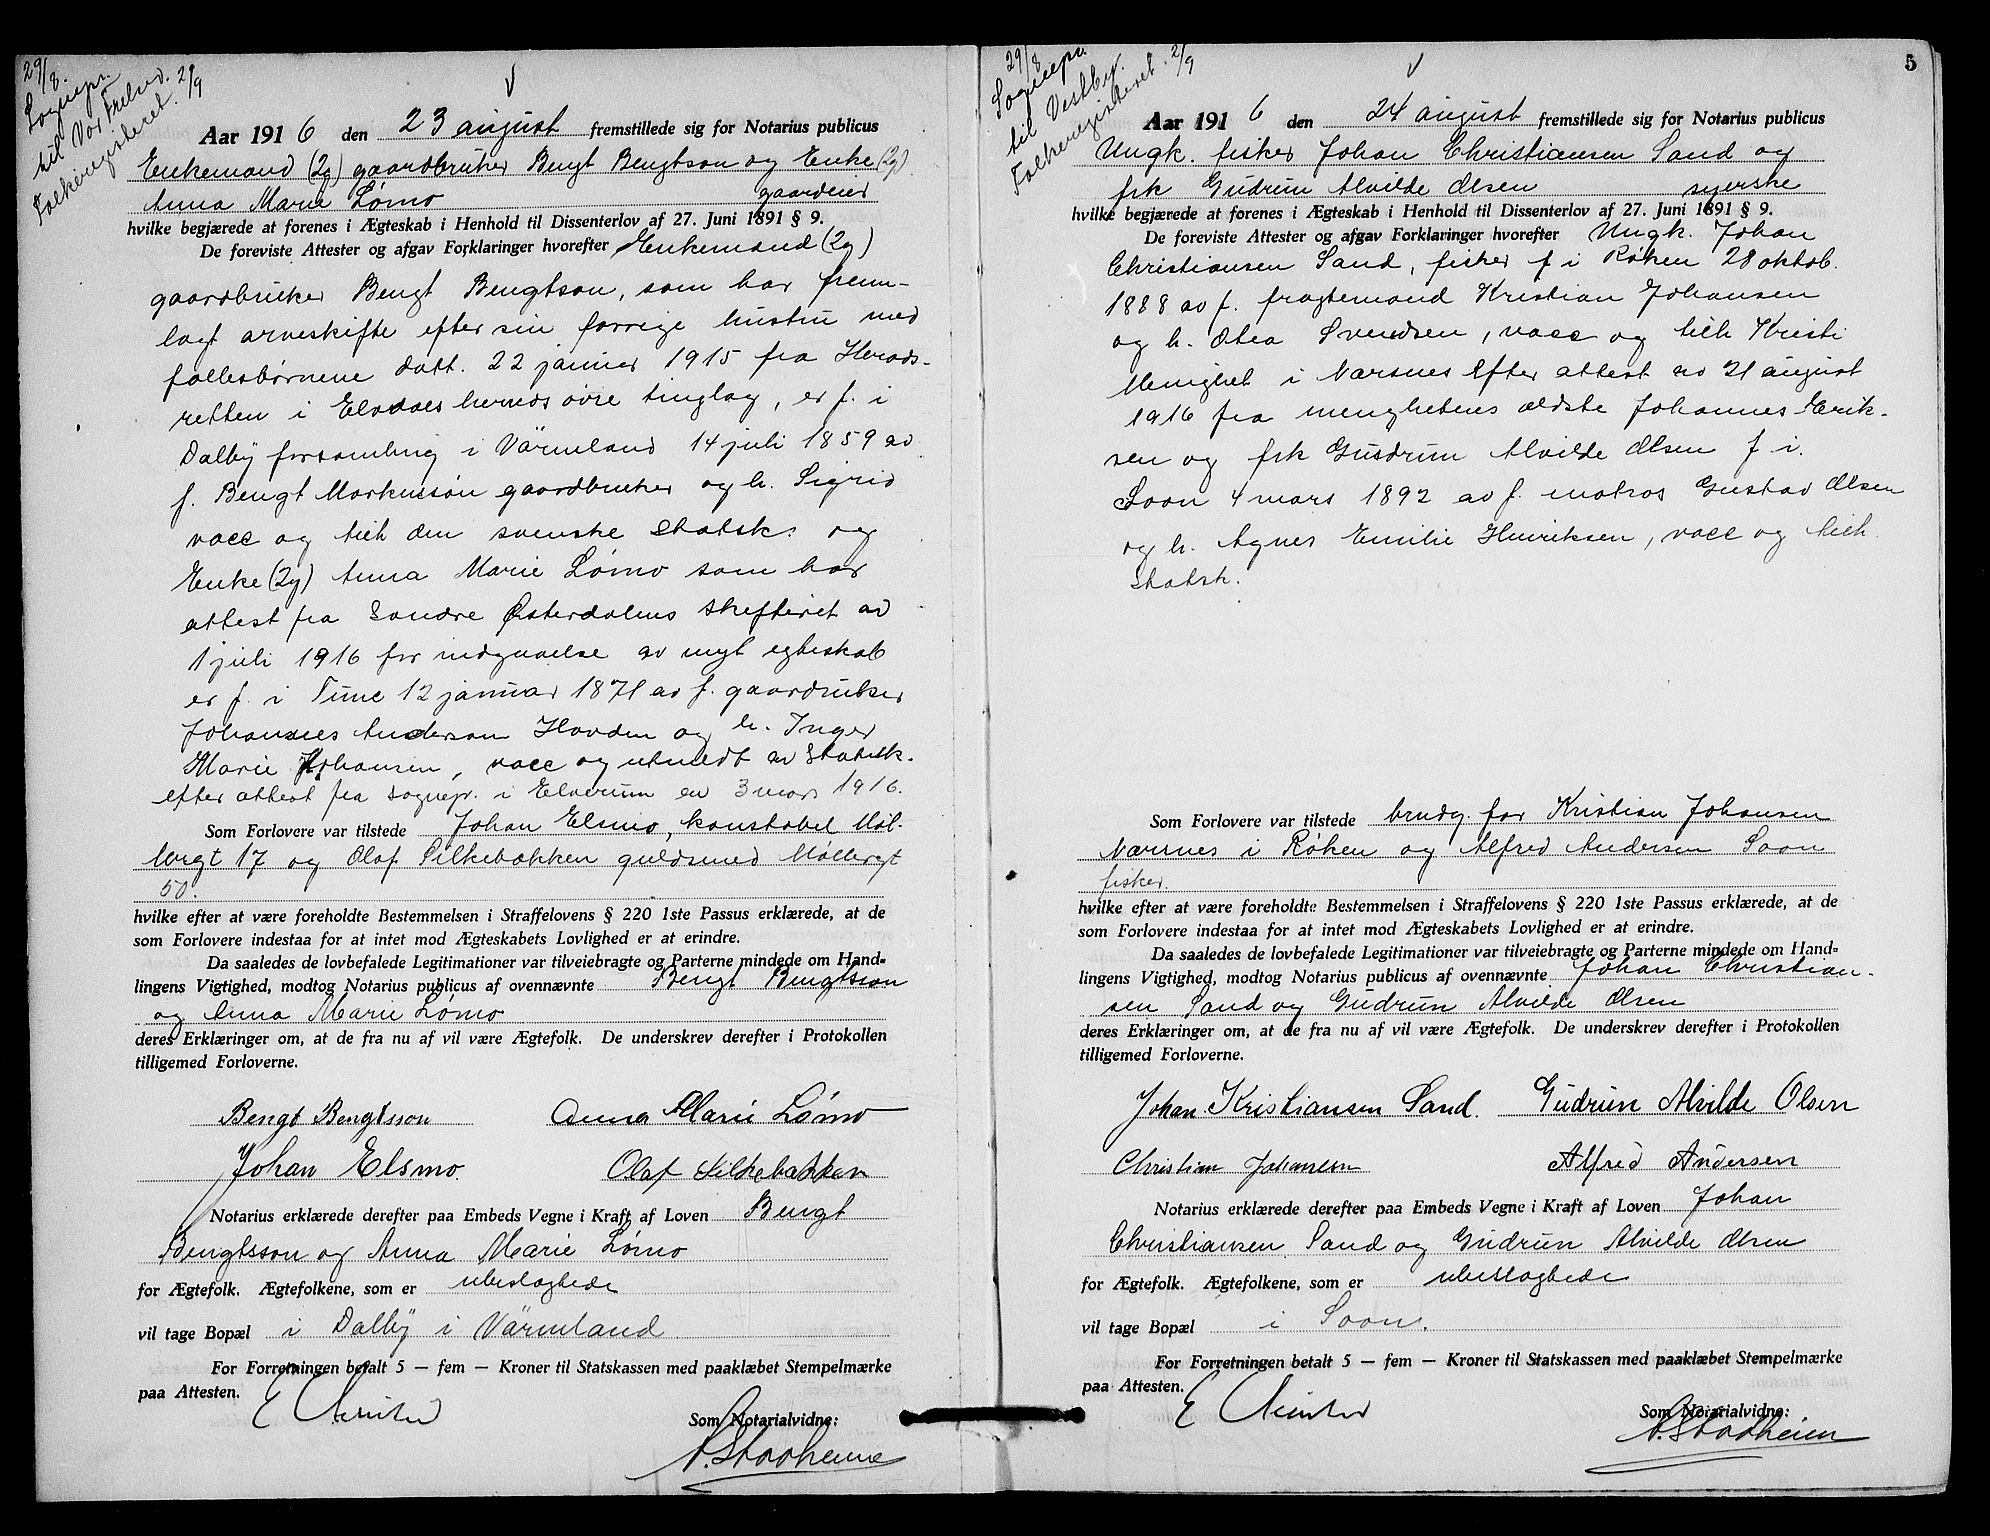 29/8.
Sognepr.
til Vor Frelsd. 2/9
Folkeregisteret.
Aar 1916 den 23 august fremstillede sig for Notarius publicus
Enkemand (2g) gaardbruker Bengt Bengtson og Enke (2g).
Anna Marie Lømo gaardeier
hvilke begjærede at forenes i Ægteskab i Henhold til Dissenterlov af 27. Juni 1891 § 9.
De foreviste Attester og afgav Forklaringer hvorefter Enkemand (2g)
gaardbruker Bengt Bengtson, som har frem-
lagt arveskifte efter sin forrige hustru med
fællesbørnene datt. 22 januar 1915 fra Herads-
retten i Elvdals herreds øvre tinglag, er f. i
Dalby forsamling i Värmland 14 juli 1859 av
f. Bengt Markusson gaardbruker og h. Sigrid
vacc og tilh den svenske statsk. og
Enke (2g) Anna Marie Lømo som har
attest fra Søndre Østerdalens skifteret av
1 juli 1916 for indgaaelse av nyt egteskab
er f. i Tune 12 januar 1871 av f. gaardbruker
Johannes Anderson Hovden og h. Inger
Marie Johansen, vacc og utmeldt av Statsk.
efter attest fra sognepr. i Elverum av 3 mars 1916.
Som Forlovere var tilstede Johan Elsmo, konstabel Møl-
lergt 17 og Olaf Silkebakken guldsmed Møllergt
50.
hvilke efter at være foreholdte Bestemmelsen i Straffelovens § 220 1ste Passus erklærede, at de
som Forlovere indestaa for at intet mod Ægteskabets Lovlighed er at erindre.
Da saaledes de lovbefalede Legitimationer var tilveiebragte og Parterne mindede om Hand-
lingens Vigtighed, modtog Notarius publicus af ovennævnte Bengt Bengtsson
og Anna Marie Lømo
deres Erklæringer om, at de fra nu af vil være Ægtefolk. De underskrev derefter i Protokollen
tilligemed Forloverne.
Bengt Bengtsson Anna Marie Lømo
Johan Elsmo. Olaf Silkebakken
Notarius erklærede derefter paa Embeds Vegne i Kraft af Loven Bengt
Bengtsson og Anna Marie Lømo
for Ægtefolk. Ægtefolkene, som er ubeslægtede
vil tage Bopæl i Dalby i Värmland
For Forretningen betalt 5 — fem — Kroner til Statskassen med paaklæbet Stempelmærke
paa Attesten.
Som Notarialvidne:
29/8
Sognepr.
til Vestby. 2/9
Folkeregisteret.
5
Aar 1916 den 24 august fremstillede sig for Notarius publicus
Ungk. fisker Johan Christiansen Sand og
frk Gudrun Alvilde Olsen syerske
hvilke begjærede at forenes i Ægteskab i Henhold til Dissenterlov af 27. Juni 1891 § 9.
De foreviste Attester og afgav Forklaringer hvorefter Ungk. Johan
Christiansen Sand, fisker f i Røken 28 oktob.
1888 av f. fragtemand Kristian Johansen
og h. Olea Svendsen, vacc og tilh Kristi
Menighet i Nærsnes efter attest av 21 august
1916 fra menighetens ældste Johannes Herik-
sen og frk Gudrun Alvilde Olsen f i.
Soon 4 mars 1892 av f. matros Gustav Olsen
og h. Agnes Emilie Henriksen, vacc og tilh.
Statsk.
Som Forlovere var tilstede brudg. far Kristian Johansen
Nærsnes i Røken og Alfred Andersen Soon
fisker.
hvilke efter at være foreholdte Bestemmelsen i Straffelovens § 220 1ste Passus erklærede, at de
som Forlovere indestaa for at intet mod Ægteskabets Lovlighed er at erindre.
Da saaledes de lovbefalede Legitimationer var tilveiebragte og Parterne mindede om Hand-
lingens Vigtighed, modtog Notarius publicus af ovennævnte Johan Christian-
sen Sand og Gudrun Alvilde Olsen
deres Erklæringer om, at de fra nu af vil være Ægtefolk. De underskrev derefter i Protokollen
tilligemed Forloverne.
Johan Kristiansen Sand. Gudrun Alvilde Olsen
Christian Johansen Alfred Andersen
Notarius erklærede derefter paa Embeds Vegne i Kraft af Loven Johan
Christiansen Sand og Gudrun Alvilde Olsen
for Ægtefolk. Ægtefolkene, som er ubeslægtede
vil tage Bopæl i Soon.
For Forretningen betalt 5 — fem — Kroner til Statskassen med paaklæbet Stempelmærke
paa Attesten.
Som Notarialvidne: